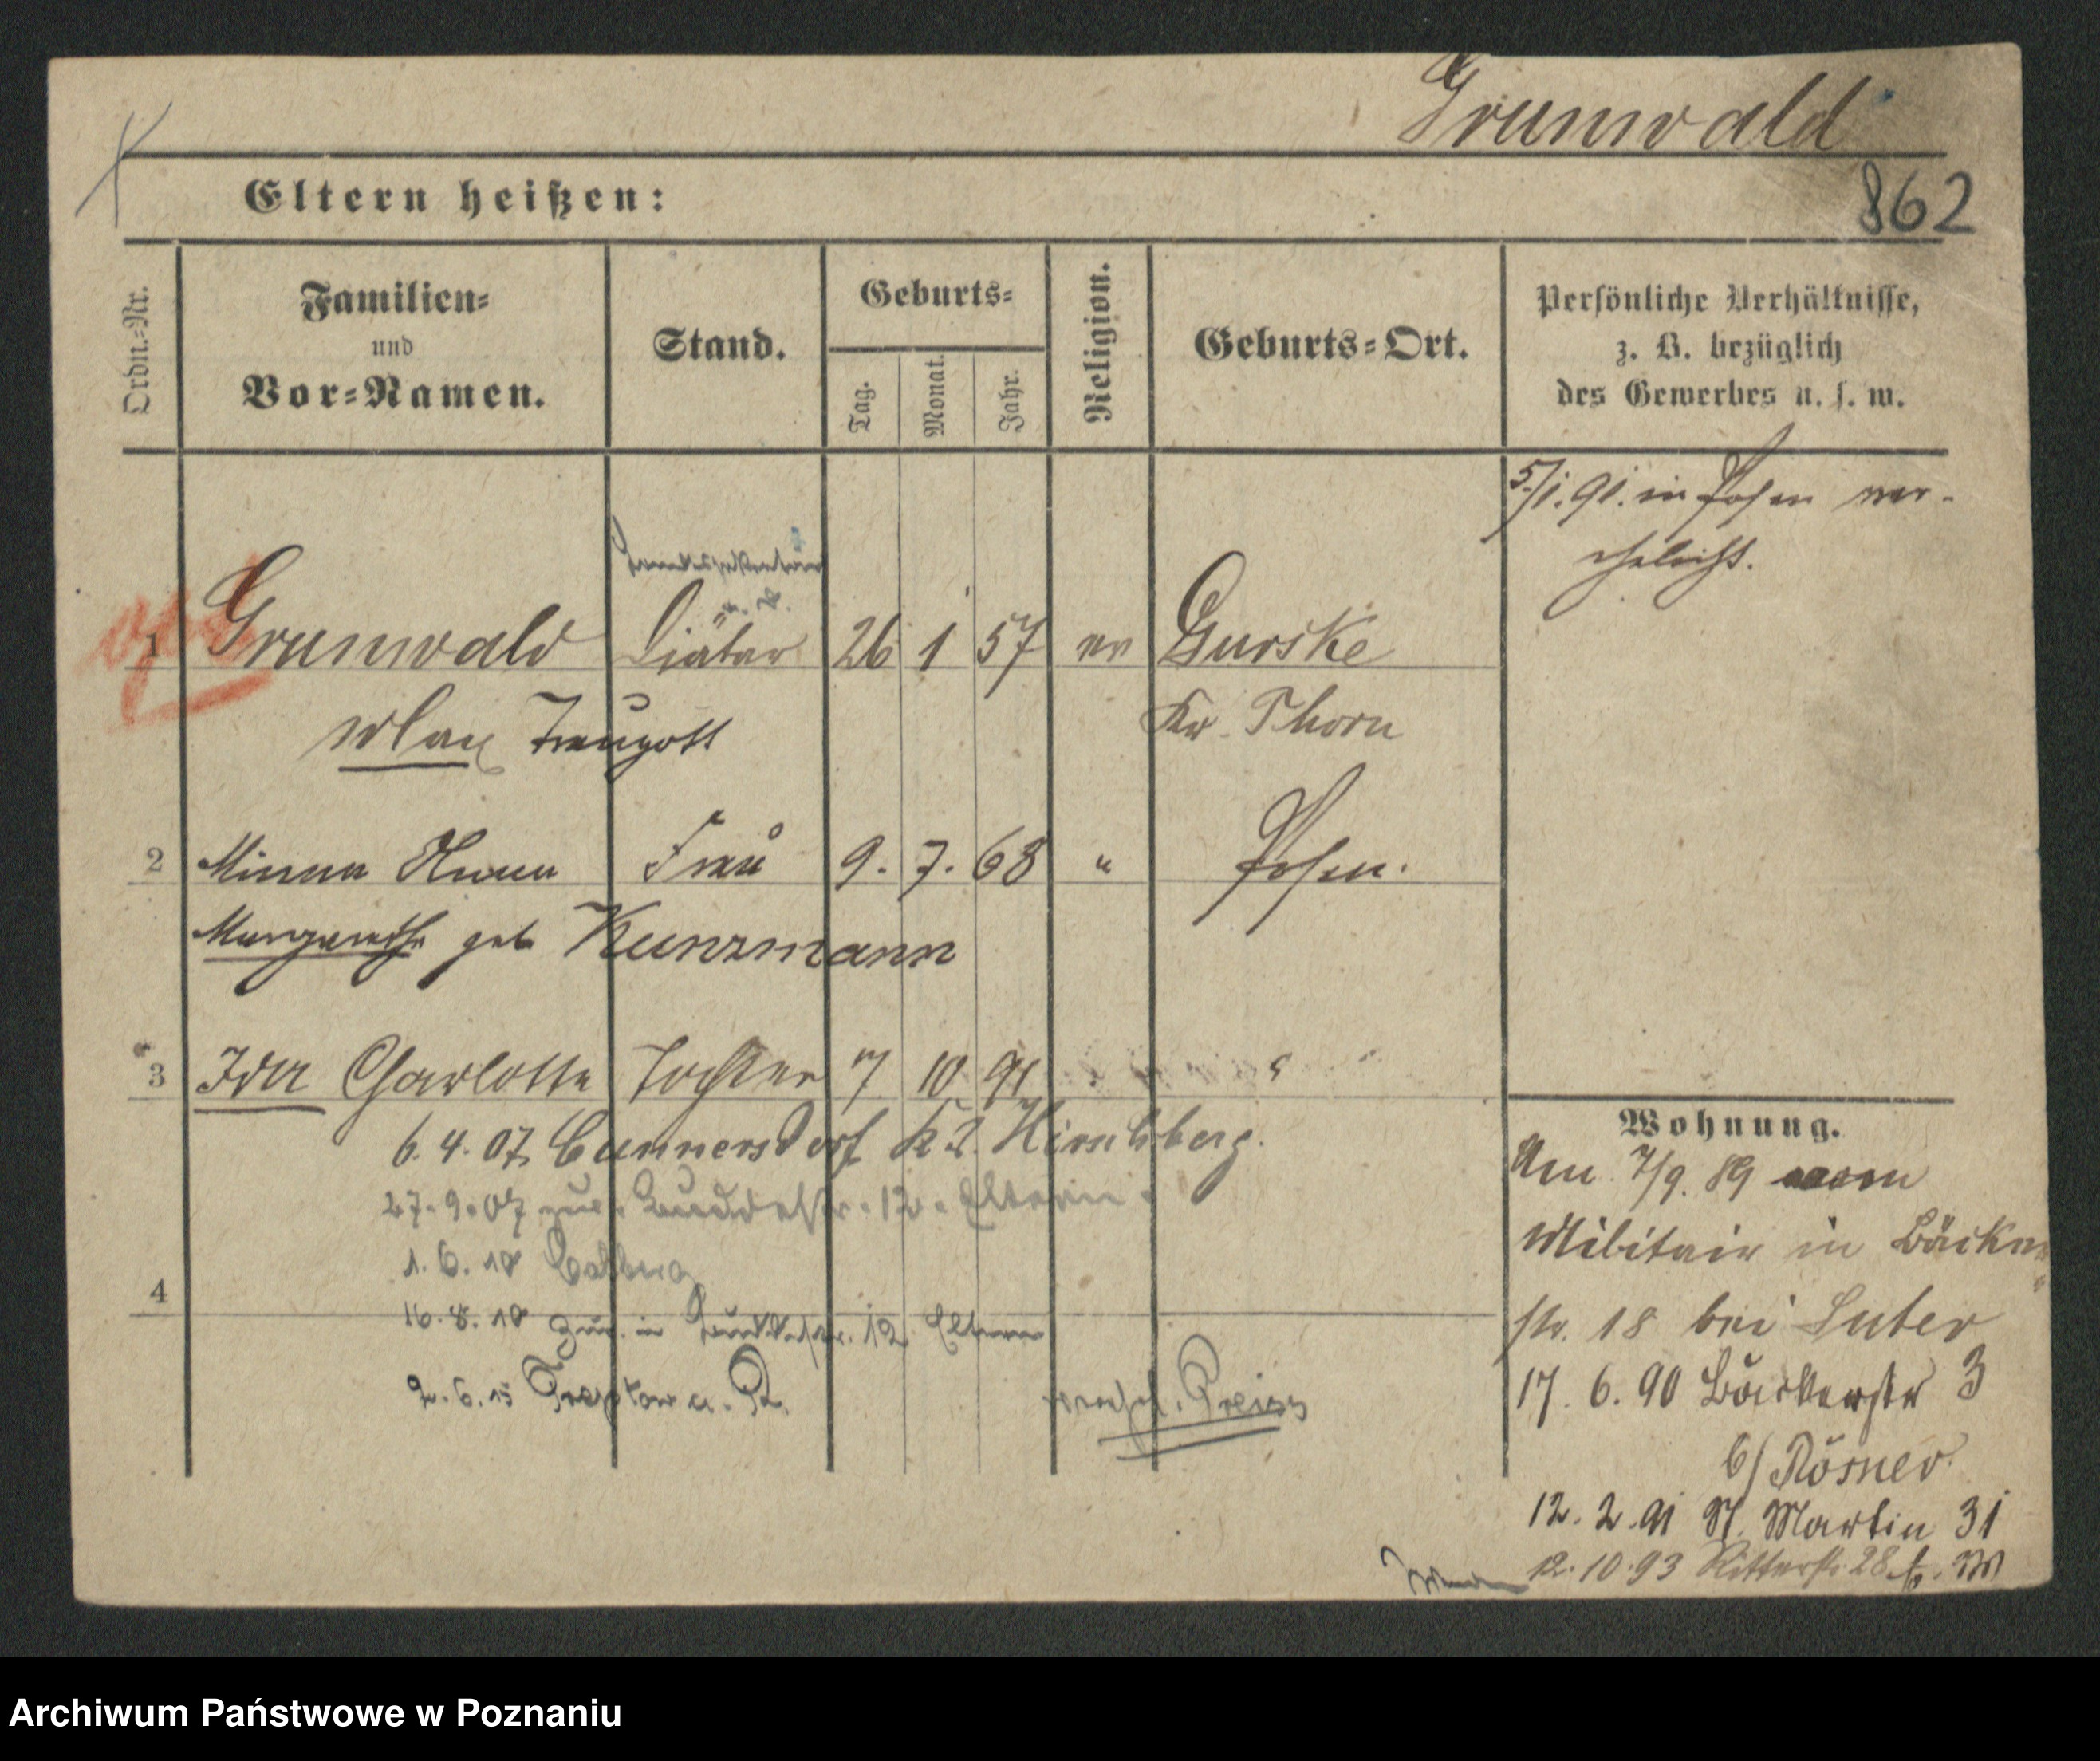 Grunwald
862
Eltern heißen:
Ordn.-Nr.
Familien-
und
Vor-Namen.
Stand.
Geburts-
Tag.
Monat.
Jahr.
Religion.
Geburts-Ort.
Persönliche Verhältnisse,
z. B. bezüglich
des Gewerbes u. s. w.
5/1. 91. in Posen ver-
ehelicht.
1 Grunwald Diätar 26 1 57 ev Gurske
Max Traugott Kr. Thorn
2 Minna Anna Frau 9. 7. 68 " Posen.
Margarethe geb Kunzmann
3 Ida Charlotte Tochter 7 10 91
6. 4. 07 Cunnersdorf Kr. Hirschberg.
27. 9. 07 12 Eltern
1. 6. 10 Colberg
4
16. 8. 10 zur. in 12 Eltern
2. 6. 15 Treptow a. R. verehel. Preiss
Wohnung.
Am 7/9. 89 vom
Militair in Bäcker
str. 18 bei Luter
17. 6. 90 Bäckerstr 3
b/ Rösner
12. 2. 91 St. Martin 31
12. 10. 93 Ritterstr. 28
Archiwum Państwowe w Poznaniu